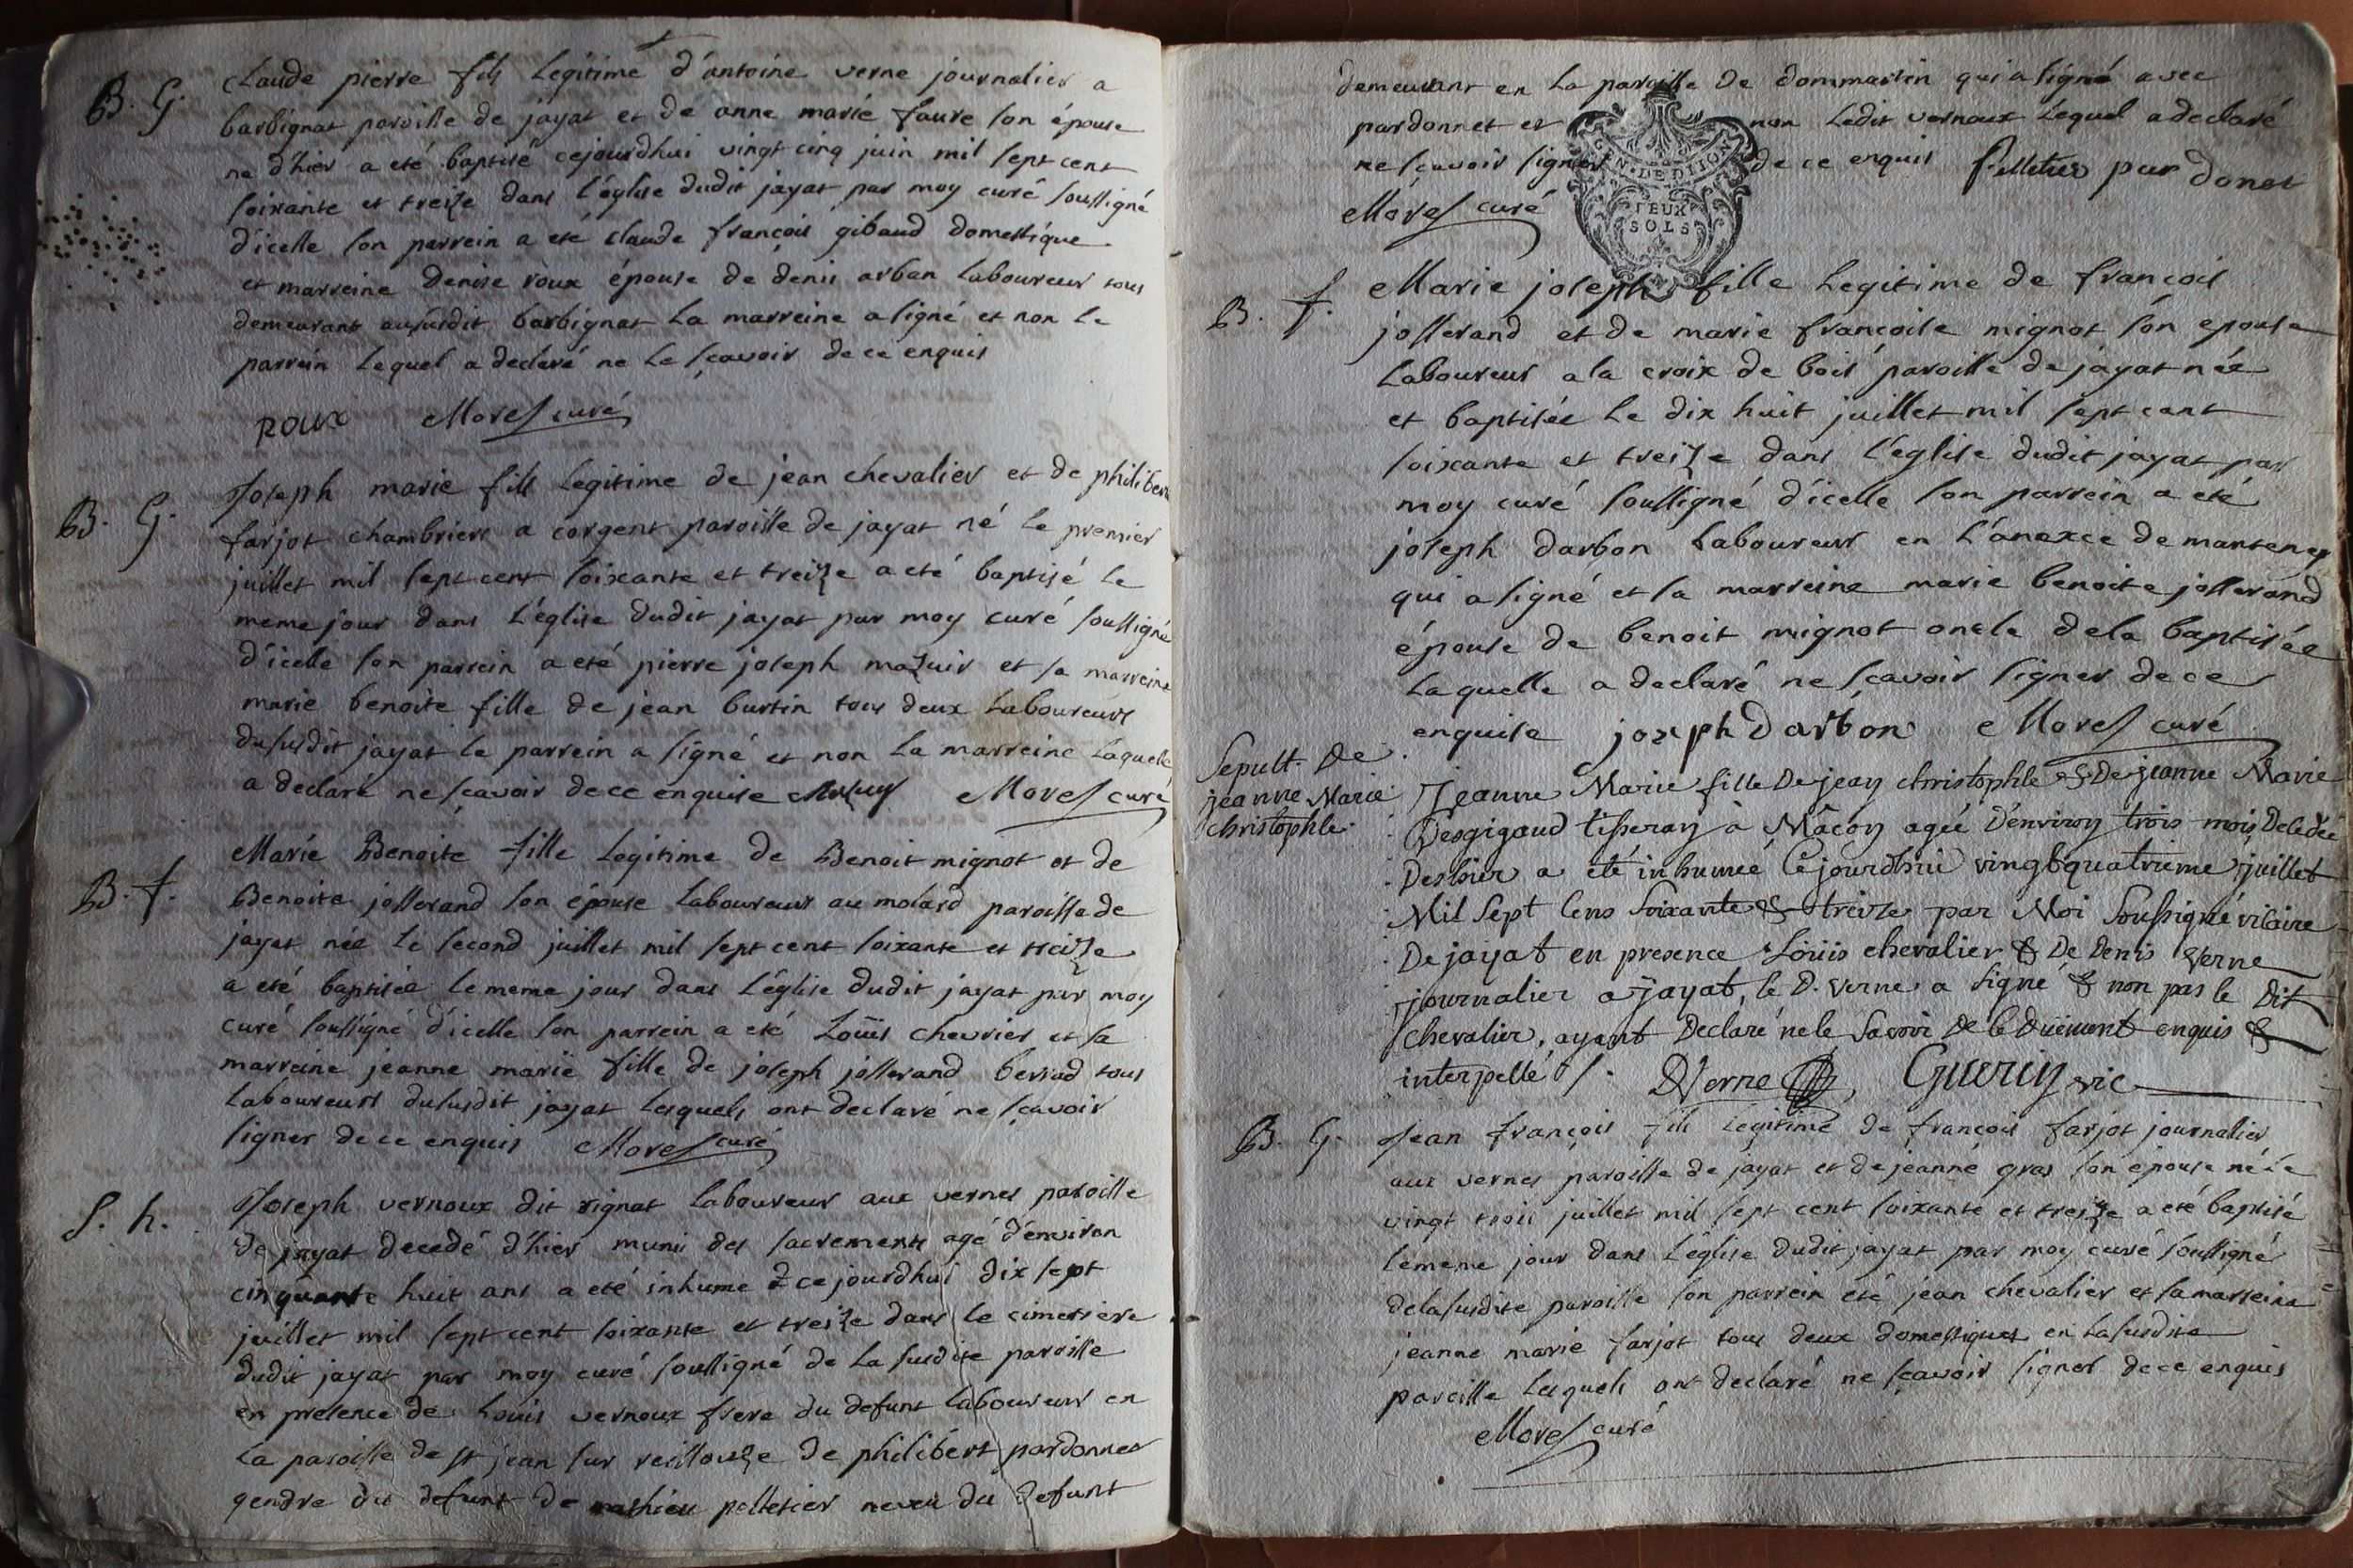 B. G. Claude pierre fils legitime d'antoine verne journalier a
barbignat paroisse de jayat et de anne marie faure son épouse
ne d'hier a eté baptisé cejourdhui vingt cinq juin mil sept cent
soixante et treize dans l'église dudit jayat par moy curé soussigné
d'icelle son parrein a eté claude françois gibaud domestique
et marreine denise roux épouse de denis arban laboureur tous
demeurant aususdit barbignat la marreine a signé et non le
parrein lequel a declaré ne le sçavoir de ce enquis
Roux Morel curé
B. G. Joseph marie fils legitime de jean chevalier et de philiber
farjot chambriere a corgent paroisse de jayat né le premier
juillet mil sept cent soixante et treize a eté baptisé le
meme jour dans l'église dudit jayat par moy curé soussigné
d'icelle son parrein a eté pierre joseph mazuir et sa marreine
marie benoite fille de jean burtin tous deux laboureurs
dususdit jayat le parrein a signé et non la marreine laquelle
a declaré ne sçavoir de ce enquise Morel curé
B. f. Marie Benoite fille legitime de Benoit mignot et de
Benoite josserand son épouse laboureur au molard paroisse de
jayat née le second juillet mil sept cent soixante et treize
a eté baptisée le meme jour dans l'église dudit jayat par moy
curé soussigné d'icelle son parrein a eté Loüis chevrier et sa
marreine jeanne marie fille de joseph josserand berrod tous
laboureurs dususdit jayat lesquels ont declaré ne sçavoir
signer de ce enquis Morel curé
S. h. Joseph vernoux dit rignat laboureur aux vernes paroisse
de jayat decedé d'hier muni des sacrements agé d'environ
cinquante huit ans a eté inhume cejourdhui dix sept
juillet mil sept cent soixante et treize dans le cimetiere
dudit jayat par moy curé soussigné de la susdite paroisse
en presence de Louis vernoux frere du defunt laboureur en
la paroisse de st jean sur reillouze de philibert pardonnet
gendre du defunt de mathieu pelletier neveu du defunt
demeurant en la paroisse de dommartin qui a signé avec
pardonnet et non ledit vernoux lequel a declaré
ne sçavoir signer de ce enquis Pelletier pardonet
Morel curé
GEN. DE DIION
DEUX
SOLS
B. f. Marie joseph fille legitime de françois
josserand et de marie françoise mignot son epouse
laboureur a la croix de bois paroisse de jayat née
et baptisée le dix huit juillet mil sept cent
soixante et treize dans l'église dudit jayat par
moy curé soussigné d'icelle son parrein a eté
joseph darbon laboureur en l'anexce de mantenay
qui a signé et sa marreine marie benoite josserand
épouse de benoit mignot oncle de la baptisée
laquelle a declaré ne sçavoir signer de ce
enquise joseph Darbon Morel curé
Sepult. De
jeanne Marie
christophle
Jeanne Marie fille De jean christophle & De jeanne Marie
Desgigaud tisseran à Mâcon agée D'environ trois mois Decedée
Deshier a été inhumée Cejourdhui vingtquatrieme juillet
Mil Sept Cens Soixante & treize par Moi Soussigné vicaire
De jayat en presence Loüis chevalier & De Denis Verne
journalier a jayat, le D. verne a Signé & non pas le Dit
chevalier, ayant Declaré ne le Savoir De ce Düement enquis &
interpellé /. DVerne Guerin vic
B. G. Jean françois fils legitime de françois farjot journalier
aux vernes paroisse de jayat et de jeanne gras son épouse né le
vingt trois juillet mil sept cent soixante et treize a eté baptisé
le meme jour dans l'église dudit jayat par moy curé soussigné
delasusdite paroisse son parrein eté jean chevalier et sa marreine
jeanne marie farjot tous deux domestiques en lasusdite
paroisse lesquels ont declaré ne sçavoir signer de ce enquis
Morel curé